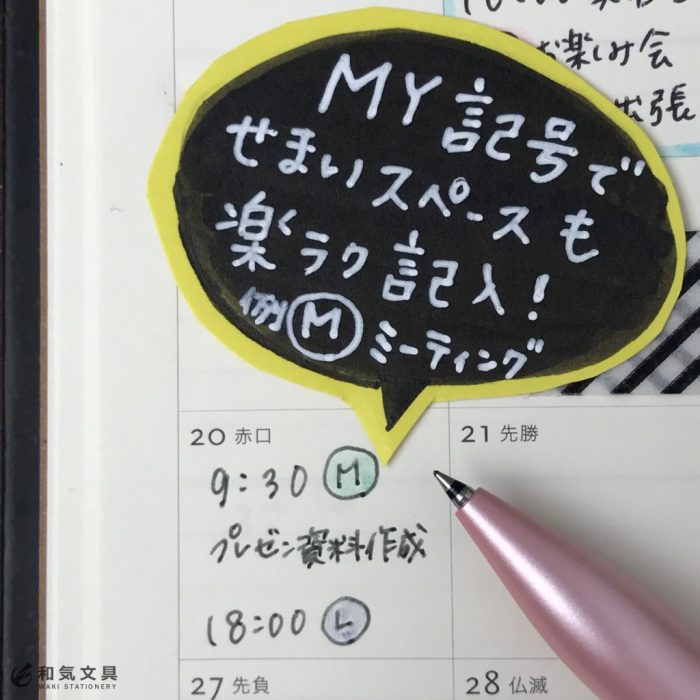 お楽しみ会
出張
MY 記号で
せまいスペースも
楽くラク記入!
例 Ⓜ ミーティング
20 赤口
21 先勝
9:30 Ⓜ
プレゼン資料作成
18:00 Ⓛ
27 先負
28 仏滅
和気文具
WAKI STATIONERY